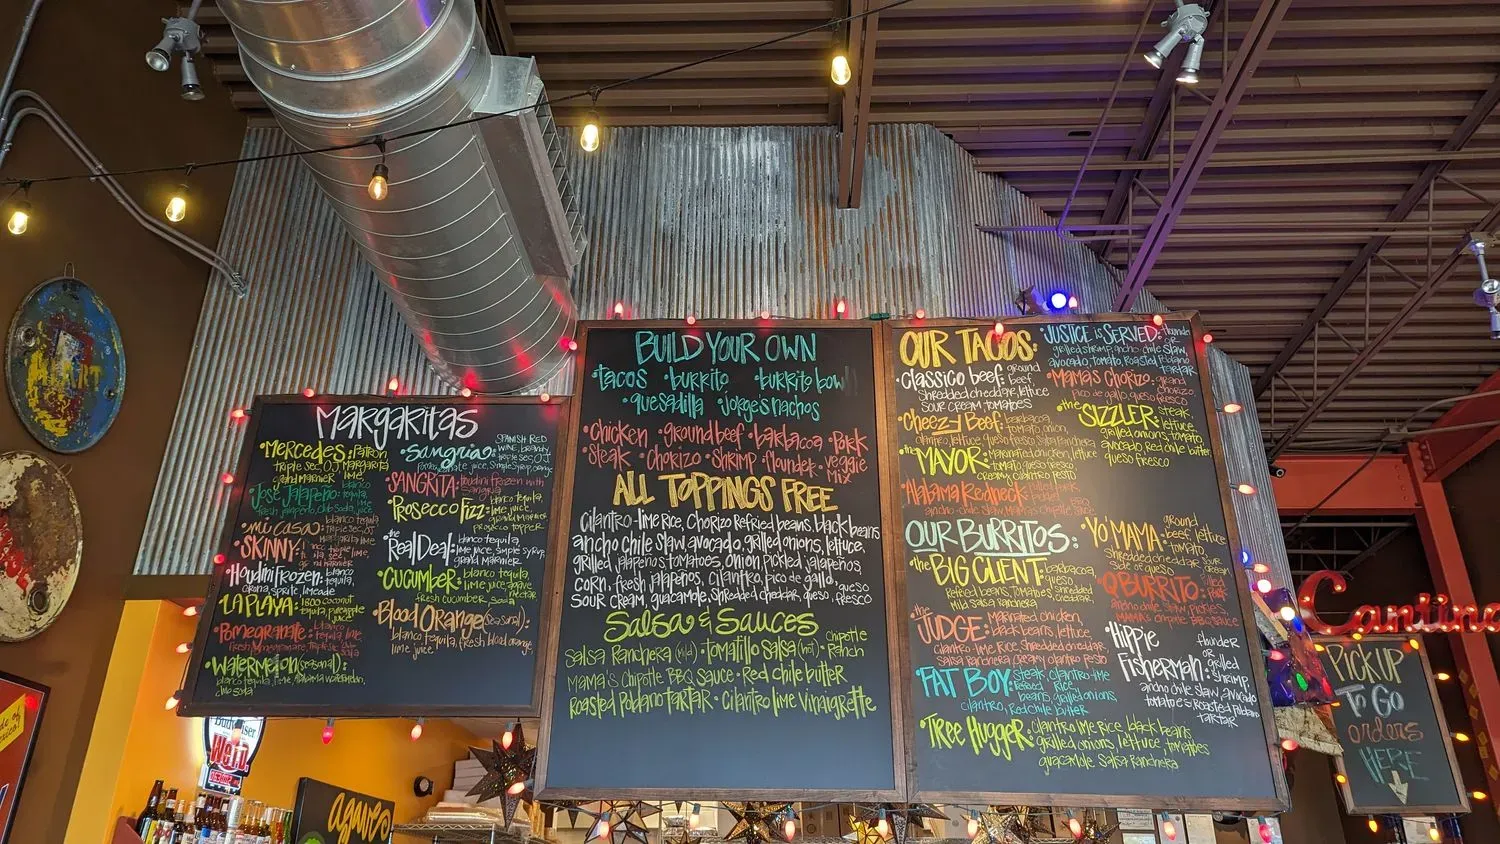 Margaritas
•Mercedes: Patron
triple sec, OJ, Margarita
grand marnier
•Jose Jalapeño: blanco
tequila, lime juice,
fresh jalapeño, club soda, juice
•mi casa: blanco tequila
margarita lime
•SKINNY: blanco tequila, lime,
grand marnier
•Houdini Frozen: blanco
tequila,
orange, sprite, limeade
•LA PLAYA: 1800 coconut
tequila, pineapple
juice
•Pomegranate: blanco
tequila, lime
•Watermelon (seasonal):
blanco tequila, lime, Alabama watermelon,
club soda
•Sangria: SPANISH RED
WINE, brandy,
triple sec, OJ
•SANGRITA: Houdini frozen with
sangria
•Prosecco Fizz: blanco tequila,
lime juice,
grand marnier
prosecco topper
•the Real Deal: blanco tequila,
lime juice, simple syrup,
grand marnier
•Cucumber: blanco tequila,
lime juice, agave
nectar
fresh cucumber, soda
•Blood Orange (seasonal):
blanco tequila, fresh blood orange,
lime juice
BUILD YOUR OWN
•tacos •burrito •burrito bowl
•quesadilla •Jorge's nachos
•Chicken •ground beef •barbacoa •Pork
•steak •Chorizo •Shrimp •flounder •veggie
MIX
ALL TOPPINGS FREE
Cilantro-lime Rice, Chorizo Refried beans, black beans
ancho chile slaw, avocado, grilled onions, lettuce,
grilled jalapeños, tomatoes, onion, pickled jalapeños,
corn, fresh jalapeños, Cilantro, pico de gallo,
sour cream, guacamole, Shredded cheddar, queso, queso fresco
Salsa & Sauces
Salsa Ranchera (mild) •Tomatillo Salsa (hot) •Chipotle
Ranch
Mama's Chipotle BBQ Sauce •Red chile butter
Roasted Poblano Tartar •Cilantro lime Vinaigrette
OUR TACOS:
•Classico beef: ground
beef,
shredded cheddar, lettuce
sour cream, tomatoes
•Cheezy Beef: barbacoa
tomato, onion,
cilantro, lettuce, queso fresco, salsa ranchera
•the MAYOR: Marinated chicken, lettuce
tomato, queso fresco
creamy cilantro pesto
•Alabama Redneck: pulled
pork, BBQ
ancho chile slaw, Mamas Chipotle BBQ Sauce
•JUSTICE is SERVED: flounder
or
grilled shrimp, ancho chile slaw,
avocado, tomato, Roasted Poblano
tartar
•Mamas Chorizo: ground
chorizo,
pico de gallo, queso fresco
•the SIZZLER: steak,
lettuce
grilled onions, tomato
avocado, red chile butter
queso fresco
OUR BURRITOS:
•the BIG CLIENT: barbacoa
queso
Refried beans, Tomatoes, Shredded
cheddar
Mild salsa ranchera
•the JUDGE: Marinated chicken,
black beans, lettuce
cilantro-lime rice, shredded cheddar,
salsa ranchera, creamy cilantro pesto
•FAT BOY: steak, cilantro-lime
rice,
Refried beans, grilled onions,
cilantro, red chile butter
•Tree Hugger: cilantro-lime rice, black beans
grilled onions, lettuce, tomatoes
guacamole, salsa ranchera
•YO MAMA: ground
beef, lettuce
•tomato•
Shredded cheddar
side of queso
•Q BURRITO: pulled
pork
ancho chile slaw, pickles,
MAMAS chipotle BBQ sauce
•Hippie
Fisherman: flounder
or
grilled
shrimp,
ancho chile slaw, avocado
tomatoes, Roasted Poblano
tartar
Cantina
PICK UP
To Go
orders
HERE
Budweiser
agave